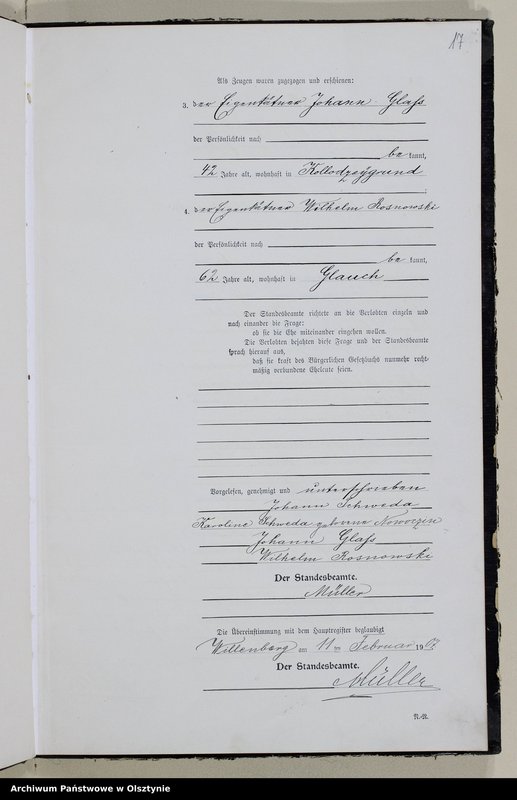 17
Als Zeugen waren zugezogen und erschienen:
3. der Eigenkätner Johann Glaß
der Persönlichkeit nach
be kannt,
42 Jahre alt, wohnhaft in Kollodzeygrund
4. der Eigenkätner Wilhelm Rosnowski
der Persönlichkeit nach
be kannt,
62 Jahre alt, wohnhaft in Glauch
Der Standesbeamte richtete an die Verlobten einzeln und
nach einander die Frage:
ob sie die Ehe miteinander eingehen wollen.
Die Verlobten bejahten diese Frage und der Standesbeamte
sprach hierauf aus,
daß sie kraft des Bürgerlichen Gesetzbuchs nunmehr recht-
mäßig verbundene Eheleute seien.
Vorgelesen, genehmigt und unterschrieben
Johann Schweda
Karoline Schweda geborene Noworzin
Johann Glaß
Wilhelm Rosnowski
Der Standesbeamte.
Müller
Die Übereinstimmung mit dem Hauptregister beglaubigt
Willenberg am 11 ten Februar 1907
Der Standesbeamte.
Müller
Archiwum Państwowe w Olsztynie